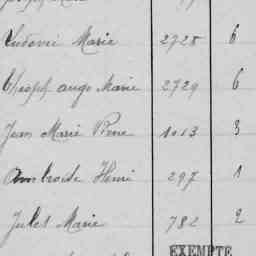 Joseph Marie
Ludovic Marie 2728 6
Joseph ange Marie 2729 6
Jean Marie Pierre 1013 3
Ambroise Henri 297 1
Jules Marie 782 2
EXEMPTÉ